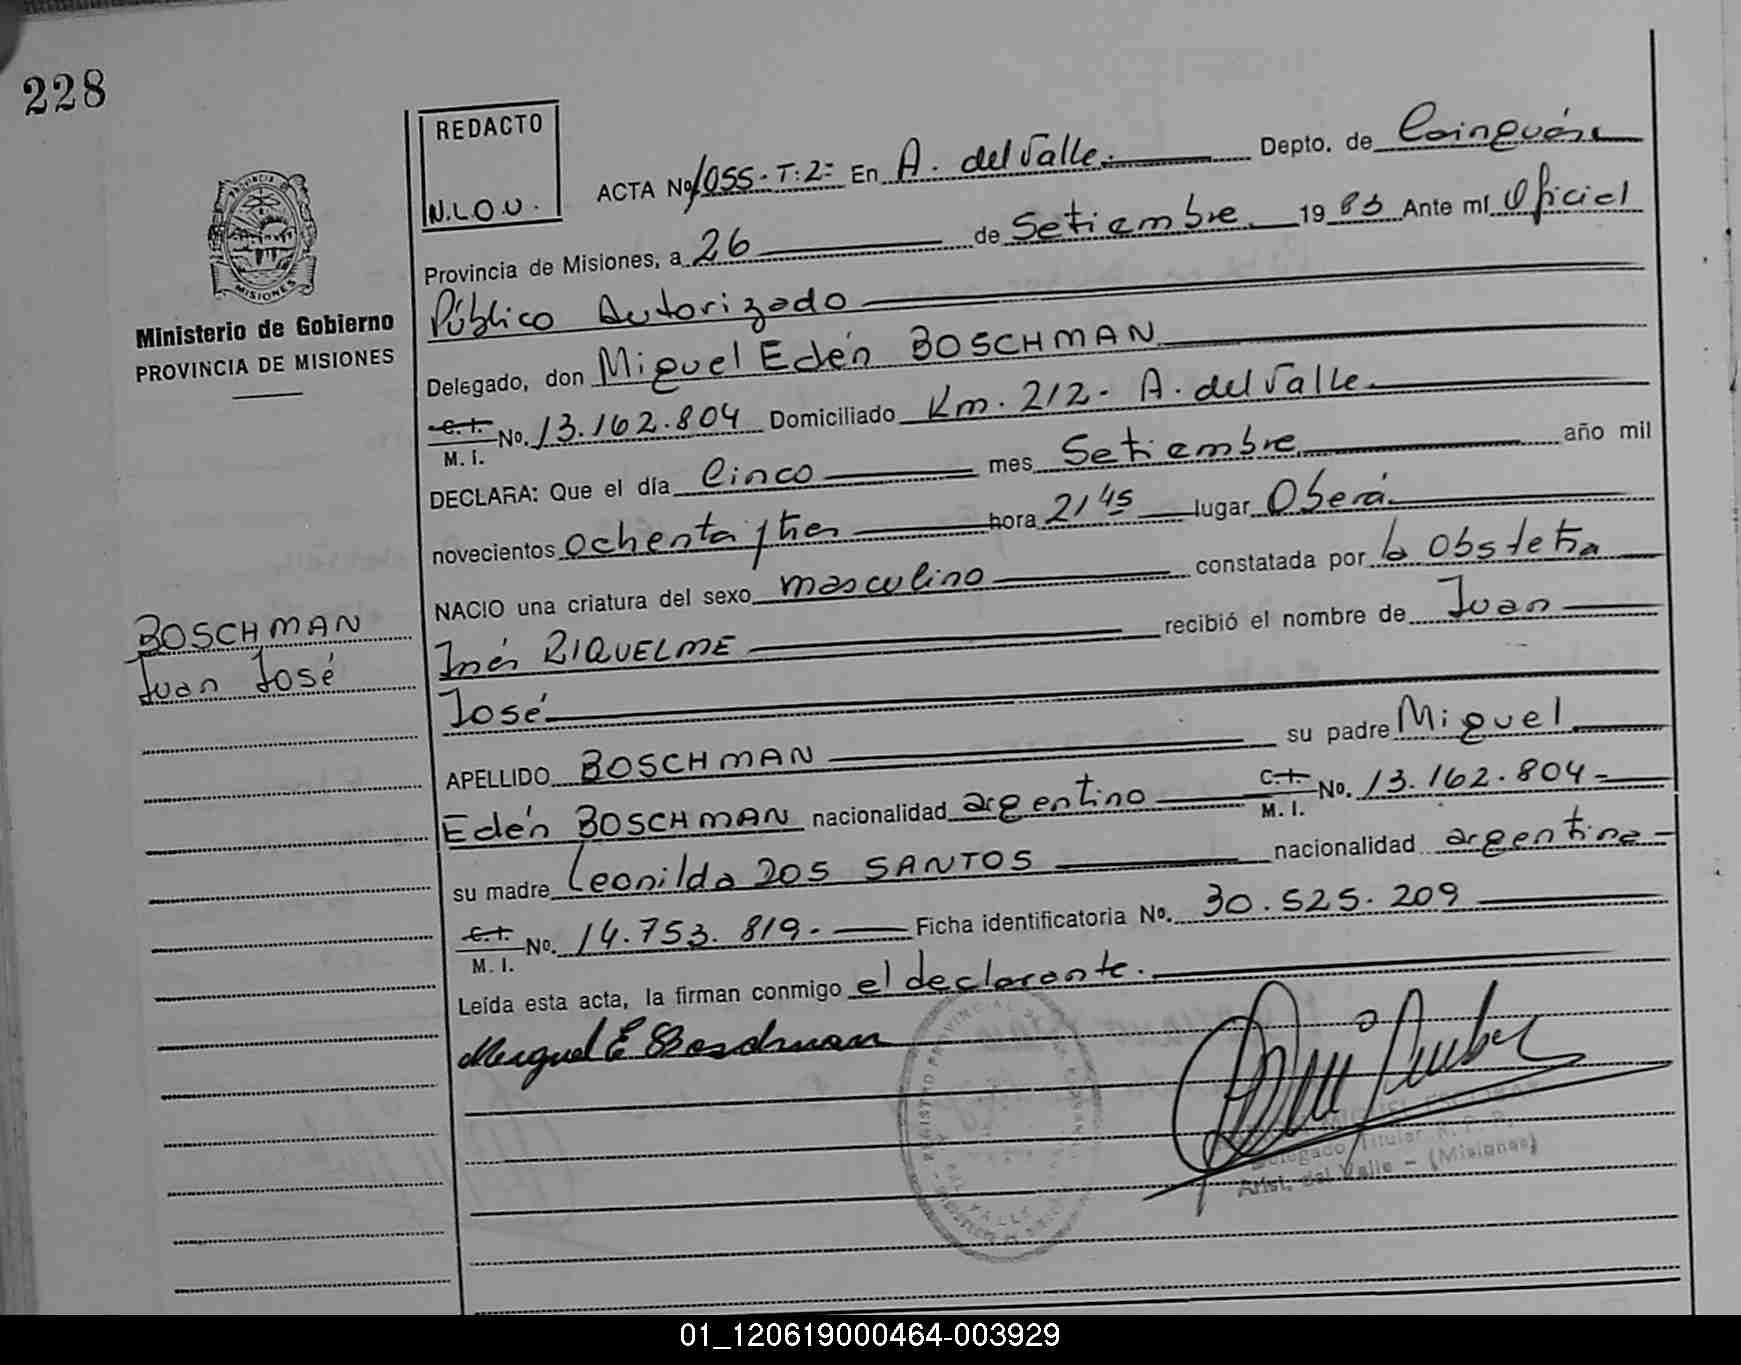 228
REDACTO
N.L.O.U.
PROVINCIA DE
MISIONES
Ministerio de Gobierno
PROVINCIA DE MISIONES
ACTA No 1055-T:2= En A. del Valle. Depto. de Cainguás
Provincia de Misiones, a 26 de Setiembre 19 83 Ante mí Oficial
Público Autorizado
Delegado, don Miguel Edén BOSCHMAN
C.I.
M. I. No. 13.162.804 Domiciliado Km. 212- A. del Valle.
DECLARA: Que el día Cinco mes Setiembre año mil
novecientos ochenta y tres hora 21 45 lugar Oberá.
NACIO una criatura del sexo masculino constatada por la obstetra
Inés RIQUELME recibió el nombre de Juan
José
APELLIDO BOSCHMAN su padre Miguel
Edén BOSCHMAN nacionalidad argentino C.I. M. I. No. 13.162.804-
su madre Leonilda DOS SANTOS nacionalidad argentina-
C.I.
M. I. No. 14.753.819.- Ficha identificatoria No. 30.525.209
Leída esta acta, la firman conmigo el declarante.
Miguel E Boschman
BOSCHMAN
Juan José
Delegado Titular R. P. P.
Arist. del Valle - (Misiones)
01_120619000464-003929